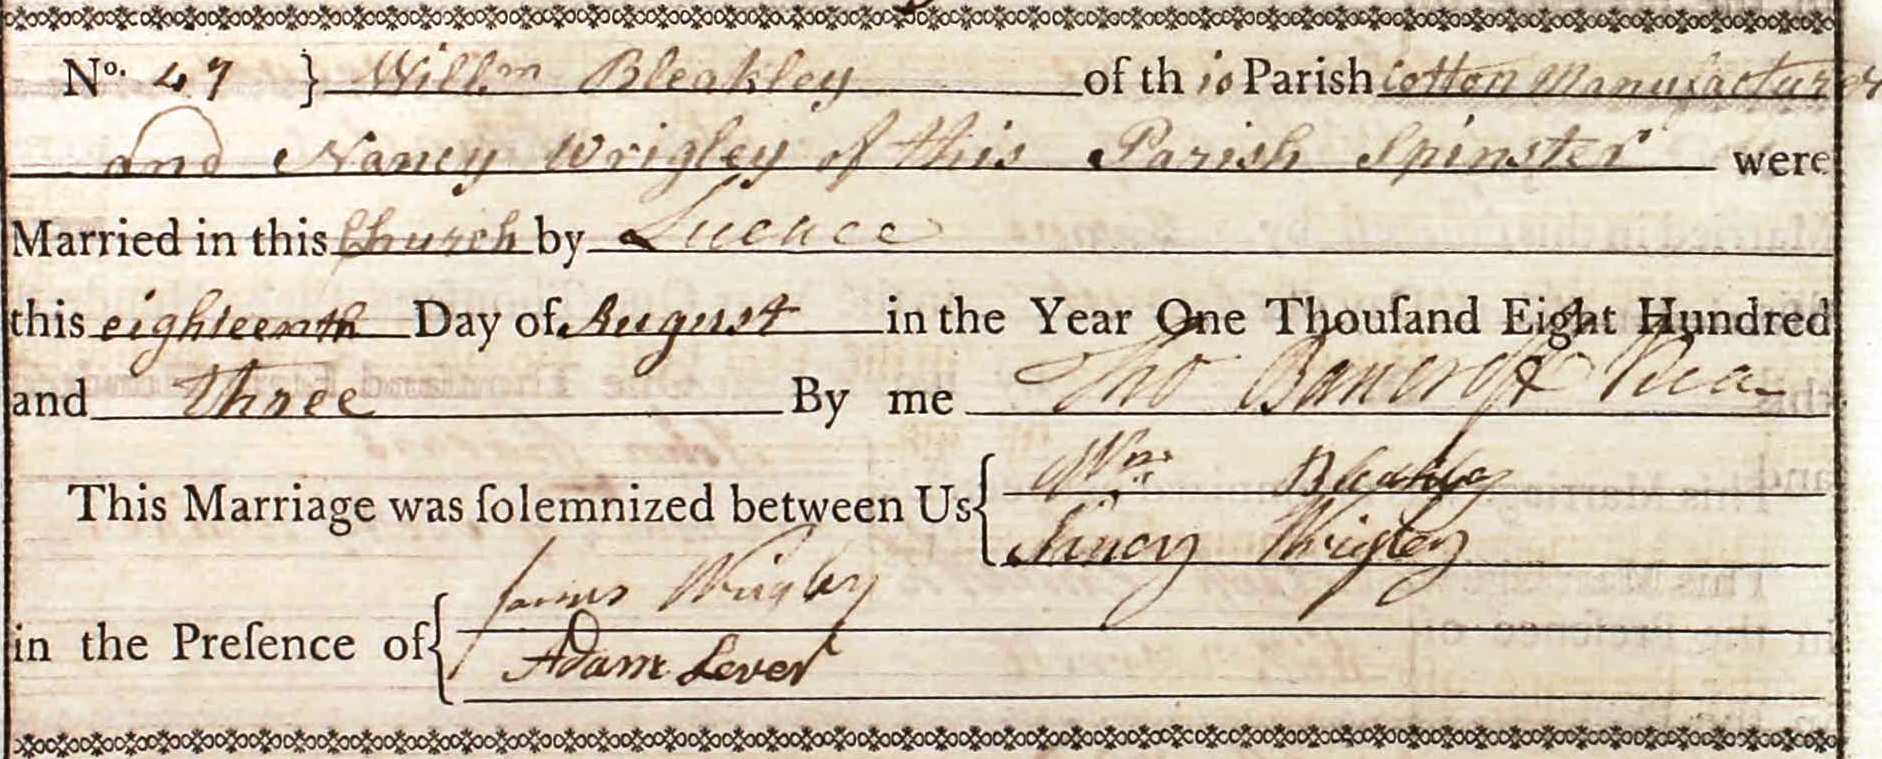 No. 47 } Willm Bleakley of this Parish Cotton Manufacturer
and Nancy Wrigley of this Parish Spinster were
Married in this Church by Licence
this eighteenth Day of August in the Year One Thouſand Eight Hundred
and three By me Tho Bancroft
This Marriage was ſolemnized between Us { Wm Bleakley
Nancy Wrigley
in the Preſence of { James Wrigley
Adam Lever